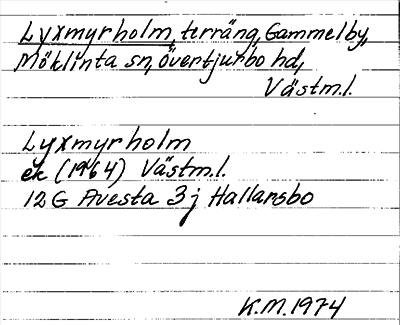 Lyxmyrholm, terräng, Gammelby,
Möklinta sn, Övertjurbo hd,
Västm.l.
Lyxmyrholm
ek (1964) Västm.l.
12G Avesta 3j Hallarsbo
K.M. 1974